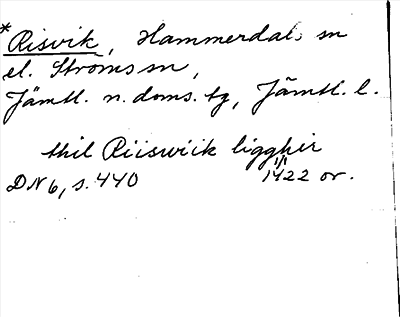 *Risvik, Hammerdals sn
el. Ströms sn,
Jämtl. n. doms. tg, Jämtl. l.
thil Riiswiik ligghir
DN 6, s. 440 1/1 1422 or.